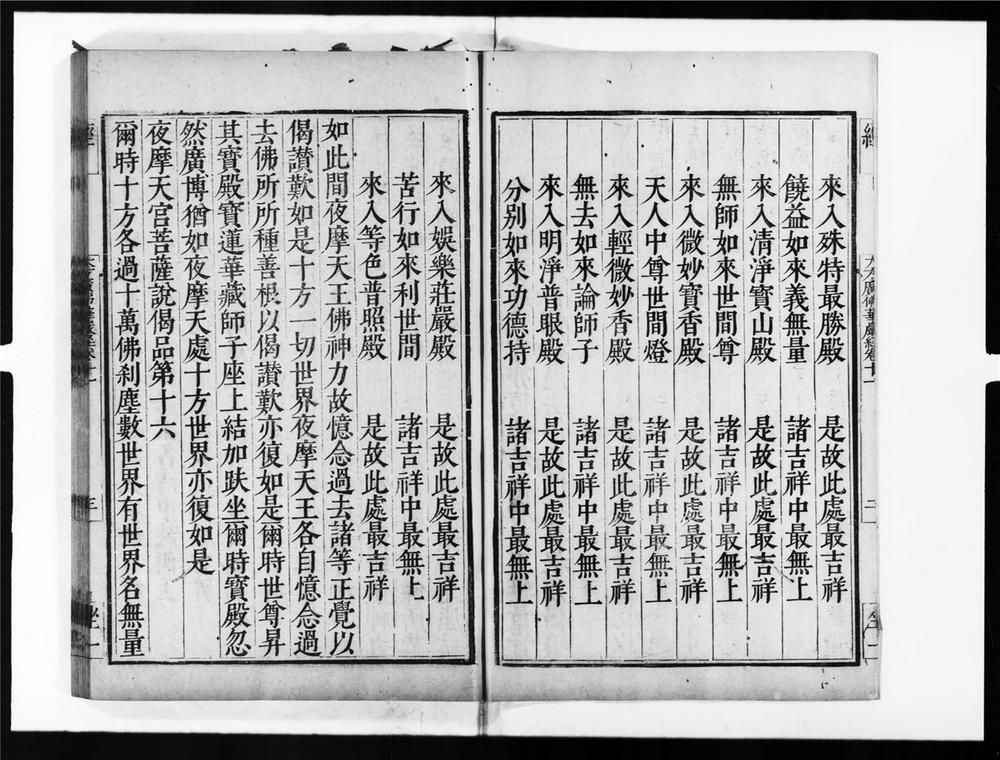 來入殊特最勝殿　是故此處最吉祥
饒益如來義無量　諸吉祥中最無上
來入清淨寶山殿　是故此處最吉祥
無師如來世間尊　諸吉祥中最無上
來入微妙寶香殿　是故此處最吉祥
天人中尊世間燈　諸吉祥中最無上
來入輕微妙香殿　是故此處最吉祥
無去如來論師子　諸吉祥中最無上
來入明淨普眼殿　是故此處最吉祥
分別如來功德持　諸吉祥中最無上
來入娛樂莊嚴殿　是故此處最吉祥
苦行如來利世間　諸吉祥中最無上
來入等色普照殿　是故此處最吉祥
如此間夜摩天王佛神力故憶念過去諸等正覺以
偈讃歎如是十方一切世界夜摩天王各自憶念過
去佛所所種善根以偈讃歎亦復如是爾時世尊昇
其寶殿寶蓮華藏師子座上結加趺坐爾時寶殿忽
然廣博猶如夜摩天處十方世界亦復如是
夜摩天宮菩薩說偈品第十六
爾時十方各過十萬佛刹塵數世界有世界名無量